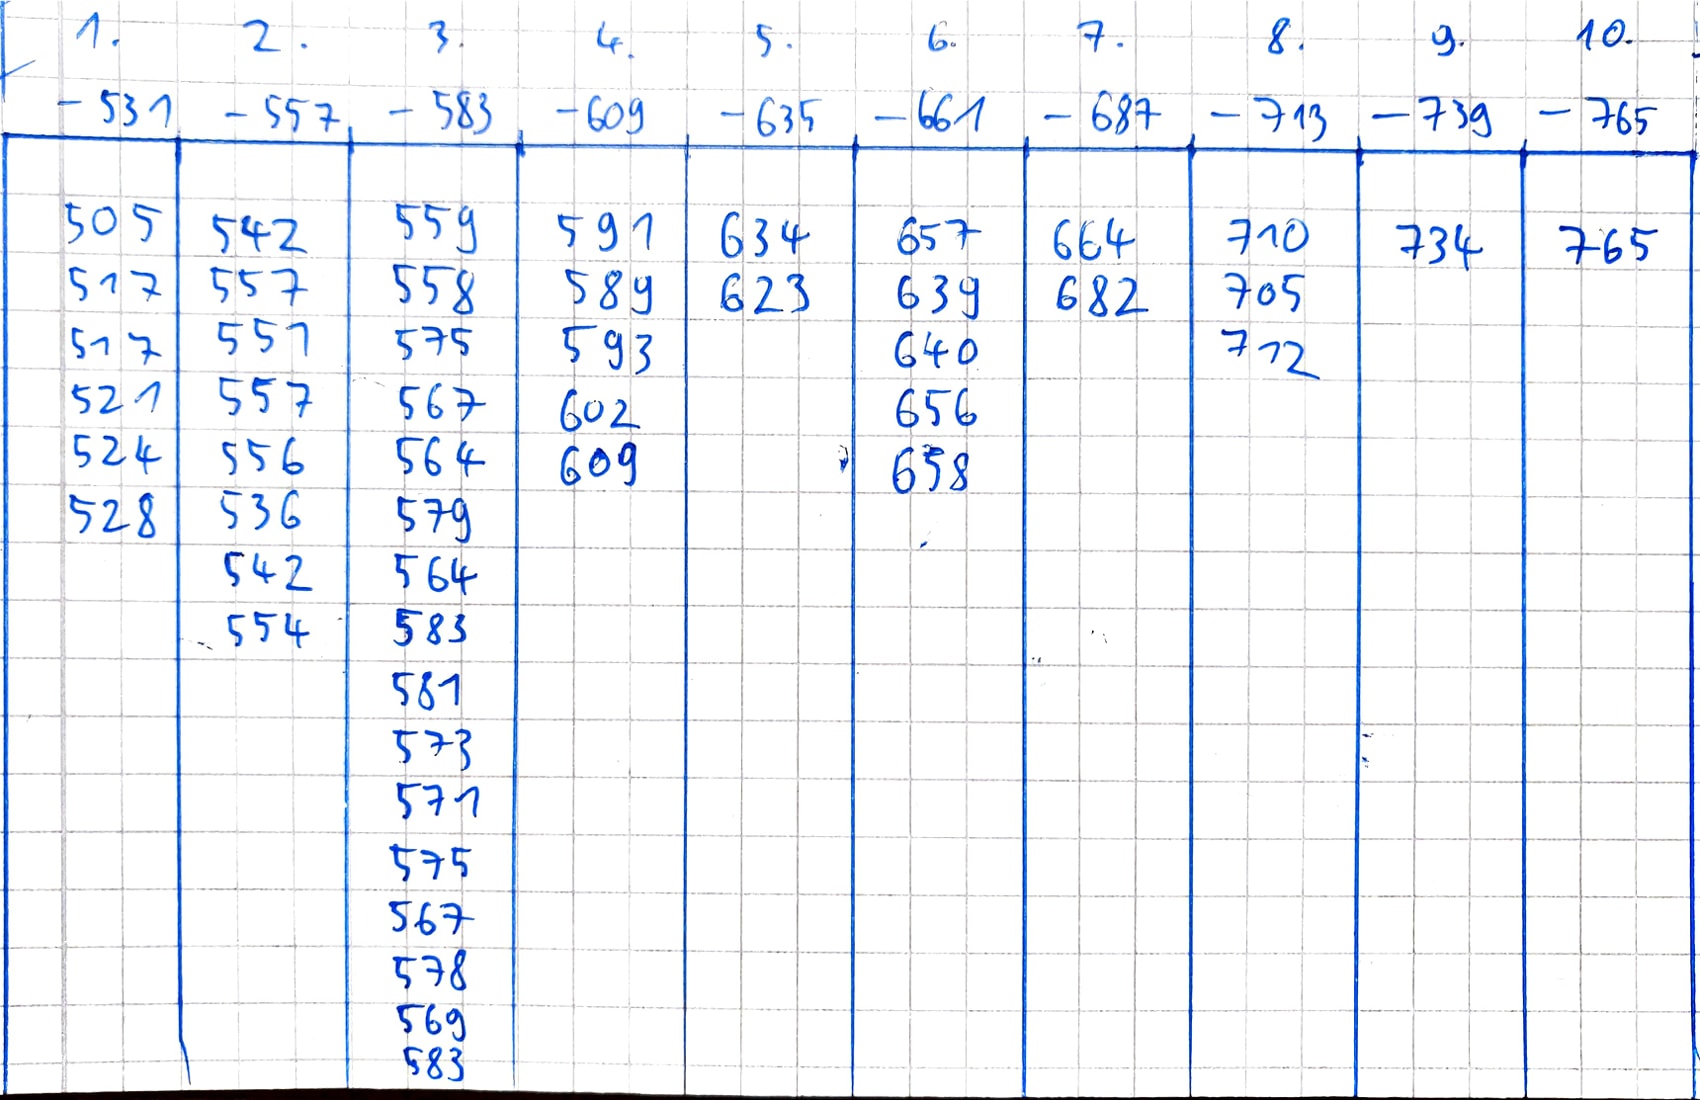 1. 2. 3. 4. 5. 6. 7. 8. 9. 10.
- 531 - 557 - 583 - 609 - 635 - 661 - 687 - 713 - 739 - 765
505 542 559 591 634 657 664 710 734 765
517 557 558 589 623 639 682 705
517 551 575 593 640 712
521 557 567 602 656
524 556 564 609 658
528 536 579
542 564
554 583
581
573
571
575
567
578
569
583